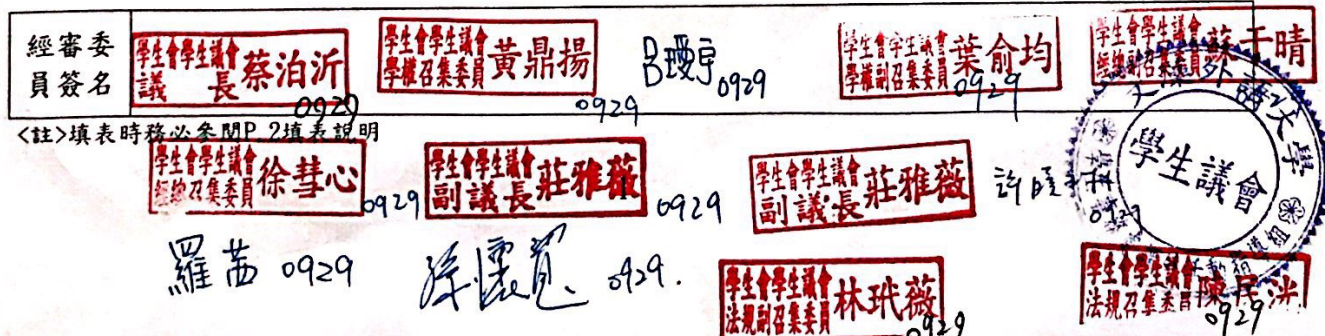 經審委
員簽名
學生會學生議會
議長 蔡泊沂
0929
學生會學生議會
學權召集委員 黃鼎揚
0929
0929
學生會學生議會
學權副召集委員 葉俞均
0929
學生會學生議會
經總副召集委員 蘇于晴
<註>填表時務必參閱P.2填表說明
學生會學生議會
經總召集委員 徐彗心
0929
學生會學生議會
副議長 莊雅薇
1
0929
學生會學生議會
副議長 莊雅薇
許
0929
外語大學
學生議會
羅茜 0929
0929.
學生會學生議會
法規副召集委員 林玳薇
0929
學生會學生議會
法規召集委員 陳民洪
0929